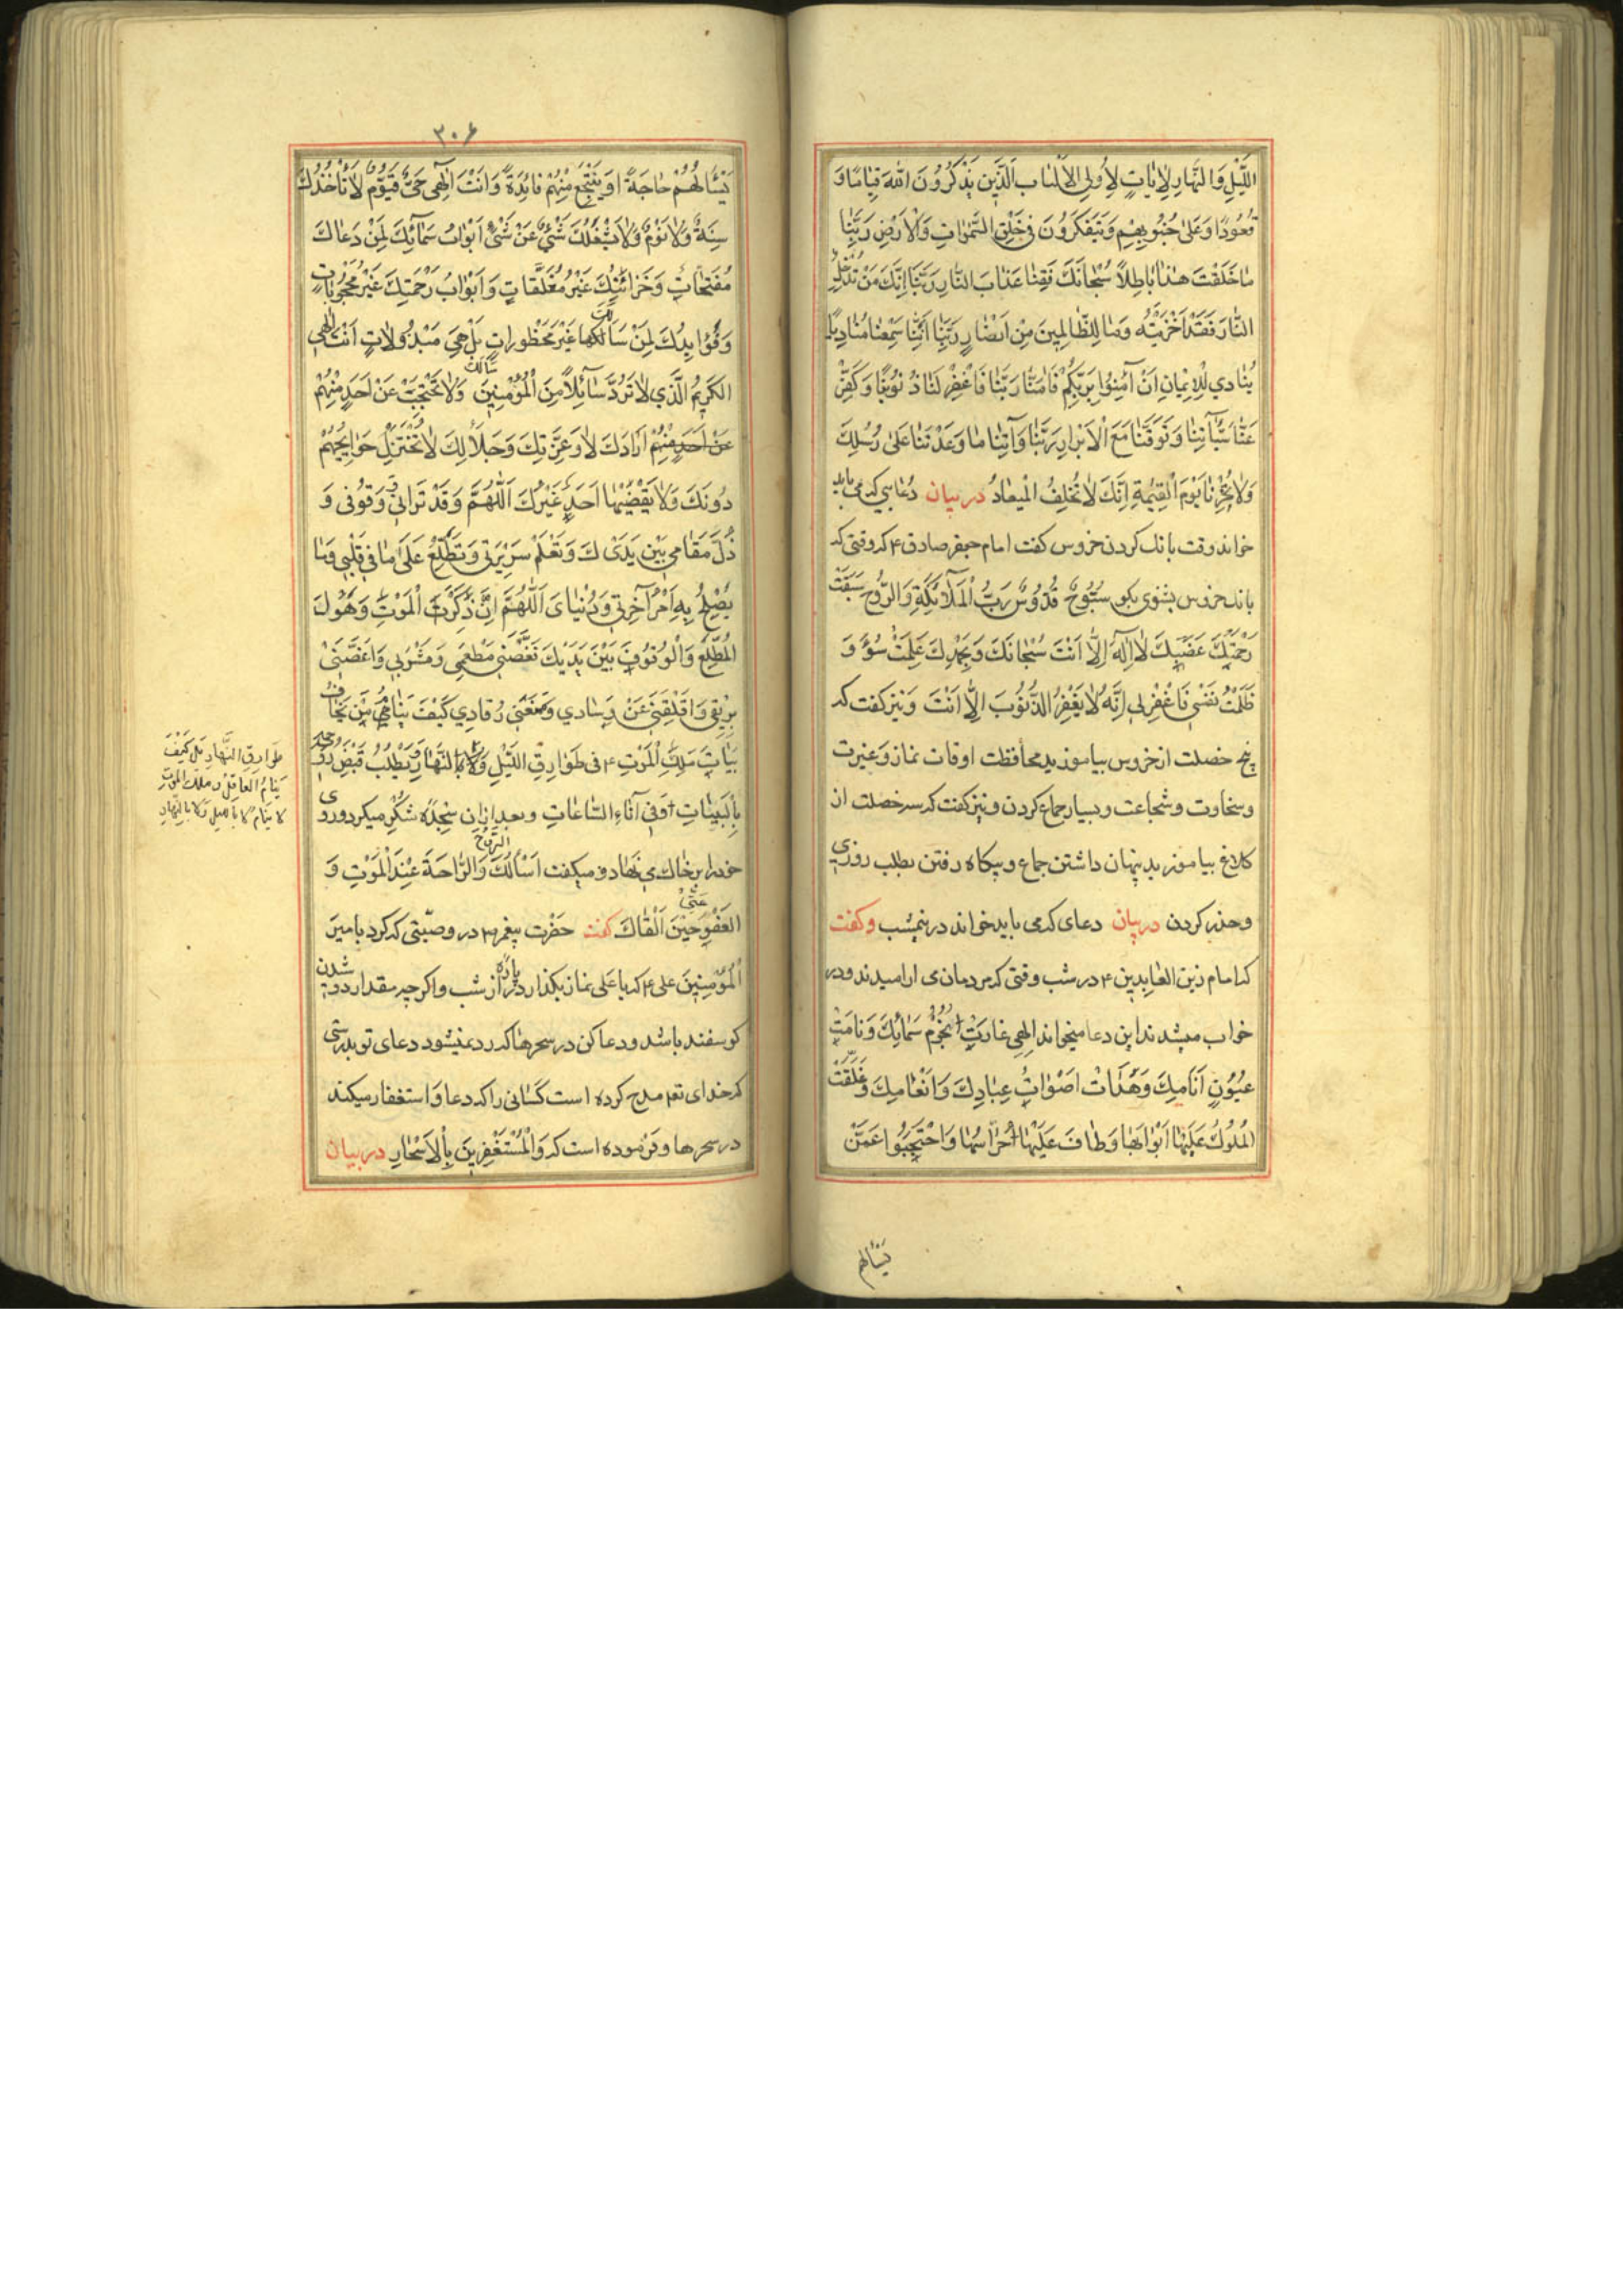 اللَّيْلِ وَالنَّهَارِ لَاٰيَاتٍ لِأُولِي الْأَلْبَابِ الَّذِينَ يَذْكُرُونَ اللّٰهَ قِيَامًا وَ
قُعُودًا وَعَلَىٰ جُنُوبِهِمْ وَيَتَفَكَّرُونَ فِي خَلْقِ السَّمٰوَاتِ وَالْأَرْضِ رَبَّنَا
مَا خَلَقْتَ هٰذَا بَاطِلًا سُبْحَانَكَ فَقِنَا عَذَابَ النَّارِ رَبَّنَا إِنَّكَ مَنْ تُدْخِلِ
النَّارَ فَقَدْ أَخْزَيْتَهُ وَمَا لِلظَّالِمِينَ مِنْ أَنْصَارٍ رَبَّنَا إِنَّنَا سَمِعْنَا مُنَادِيًا
يُنَادِي لِلْإِيمَانِ أَنْ آمِنُوا بِرَبِّكُمْ فَاٰمَنَّا رَبَّنَا فَاغْفِرْ لَنَا ذُنُوبَنَا وَكَفِّرْ
عَنَّا سَيِّئَاتِنَا وَتَوَفَّنَا مَعَ الْأَبْرَارِ رَبَّنَا وَآتِنَا مَا وَعَدْتَنَا عَلَىٰ رُسُلِكَ
وَلَا تُخْزِنَا يَوْمَ الْقِيٰمَةِ إِنَّكَ لَا تُخْلِفُ الْمِيعَادَ در بیان دعایی که می باید
خواند وقت بانک کردن خروس کفت امام جعفر صادق ۴ که وقتی که
بانک خروس بشنوی بکو سُبُّوحٌ قُدُّوسٌ رَبُّ الْمَلَائِكَةِ وَالرُّوحِ سَبَقَتْ
رَحْمَتُكَ غَضَبَكَ لَا إِلٰهَ إِلَّا أَنْتَ سُبْحَانَكَ وَبِحَمْدِكَ عَمِلْتُ سُوءً وَ
ظَلَمْتُ نَفْسِي فَاغْفِرْ لِي إِنَّهُ لَا يَغْفِرُ الذُّنُوبَ إِلَّا أَنْتَ و نیز کفت که
پنج خصلت از خروس بیاموزید محافظت اوقات نماز و غیرت
و سخاوت و شجاعت و بسیار جماع کردن و نیز کفت که سه خصلت از
کلاغ بیاموزید پنهان داشتن جماع و پکاه رفتن بطلب روزی
و حذر کردن در بیان دعای که می باید خواند در نیمشب و کفت
که امام زین العابدین ۴ در شب وقتی که مردمان می ارامیدند و در
خواب میشدند این دعا میخواند إِلٰهِي غَارَتْ نُجُومُ سَمَائِكَ وَنَامَتْ
عُيُونُ أَنَامِكَ وَهَدَأَتْ أَصْوَاتُ عِبَادِكَ وَأَنْعَامِكَ وَغَلَّقَتْ
الْمُلُوكُ عَلَيْهَا أَبْوَابَهَا وَطَافَ عَلَيْهَا حُرَّاسُهَا وَاحْتَجَبُوا عَمَّنْ
یسالهم
۳۰۶
يَسْأَلُهُمْ حَاجَةً أَوْ يَنْتَجِعُ مِنْهُمْ فَائِدَةً وَأَنْتَ إِلٰهِي حَيٌّ قَيُّومٌ لَا تَأْخُذُكَ
سِنَةٌ وَلَا نَوْمٌ وَلَا يَشْغَلُكَ شَيْءٌ عَنْ شَيْءٍ أَبْوَابُ سَمَائِكَ لِمَنْ دَعَاكَ
مُفَتَّحَاتٌ وَخَزَائِنُكَ غَيْرُ مُغَلَّقَاتٍ وَأَبْوَابُ رَحْمَتِكَ غَيْرُ مَحْجُوبَاتٍ
وَفَوَائِدُكَ لِمَنْ سَأَلَكَهَا غَيْرُ مَحْظُورَاتٍ بَلْ هِيَ مَبْذُولَاتٌ أَنْتَ إِلٰهِي
الْكَرِيمُ الَّذِي لَا تَرُدُّ سَائِلًا مِنَ الْمُؤْمِنِينَ سَأَلَكَ وَلَا تَحْتَجِبُ عَنْ أَحَدٍ مِنْهُمْ
عَنْ أَحَدٍ مِنْهُمْ أَرَادَكَ لَا وَعِزَّتِكَ وَجَلَالِكَ لَا تُخْتَزَلُ حَوَائِجُهُمْ
دُونَكَ وَلَا يَقْضِيهَا أَحَدٌ غَيْرُكَ اللّٰهُمَّ وَقَدْ تَرَانِي وَوُقُوفِي وَ
ذُلَّ مَقَامِي بَيْنَ يَدَيْكَ وَتَعْلَمُ سَرِيرَتِي وَتَطَّلِعُ عَلَىٰ مَا فِي قَلْبِي وَمَا
يُصْلِحُ بِهِ أَمْرَ آخِرَتِي وَدُنْيَايَ اللّٰهُمَّ إِنْ ذَكَرْتُ الْمَوْتَ وَهَوْلَ
الْمُطَّلَعِ وَالْوُقُوفَ بَيْنَ يَدَيْكَ نَغَّصَنِي مَطْعَمِي وَمَشْرَبِي وَأَغَصَّنِي
بِرِيقِي وَأَقْلَقَنِي عَنْ وِسَادِي وَمَنَعَنِي رُقَادِي كَيْفَ يَنَامُ مَنْ يَخَافُ
بَيَاتَ مَلَكِ الْمَوْتِ ۴ فِي طَوَارِقِ اللَّيْلِ النَّهَارِ وَيَطْلُبُ قَبْضَ رُوحِهِ
بِالْبَيَاتِ أَوْ فِي آنَاءِ السَّاعَاتِ و بعد از ان سجده شکر میکرد و روی
خود را بر خاک می نهاد و میکفت أَسْأَلُكَ الرَّوْحَ وَالرَّاحَةَ عِنْدَ الْمَوْتِ وَ
الْعَفْوَ عَنِّي حِينَ أَلْقَاكَ کفت حضرت پیغمبر ۴ در وصیتی که کرد بامیر
المؤمنین علی ۴ که یا علی نماز بکذار در پاره از شب و اکرچه مقدار دوشیدن
کوسفند باشد و دعا کن در سحرها که رد نمیشود دعای تو بدرستی
که خدای تعم مدح کرده است کسانی را که دعا و استغفار میکنند
در سحرها و فرموده است که وَالْمُسْتَغْفِرِينَ بِالْأَسْحَارِ در بیان
طوارق النهار بل كيف
ينام العاقل و ملك الموت
لا ينام لا بالليل و لا بالنهار